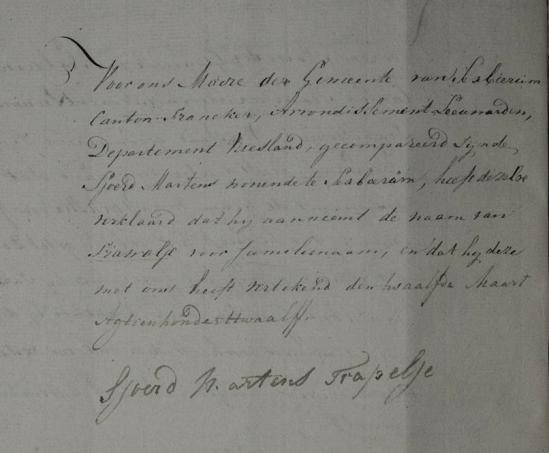 Voor ons Maire der Gemeente van
Canton Franeker, Arrondissement Leeuwarden,
Departement Vriesland, gecompareerd zynde
Sjoerd Martens wonende te, heeft dezelve
verklaard dat hy aanneemt de naam van
voor familienaam, en dat hy deze
met ons heeft getekend den twaalfde Maart
Agtienhondert twaalf.
Sjoerd Martens